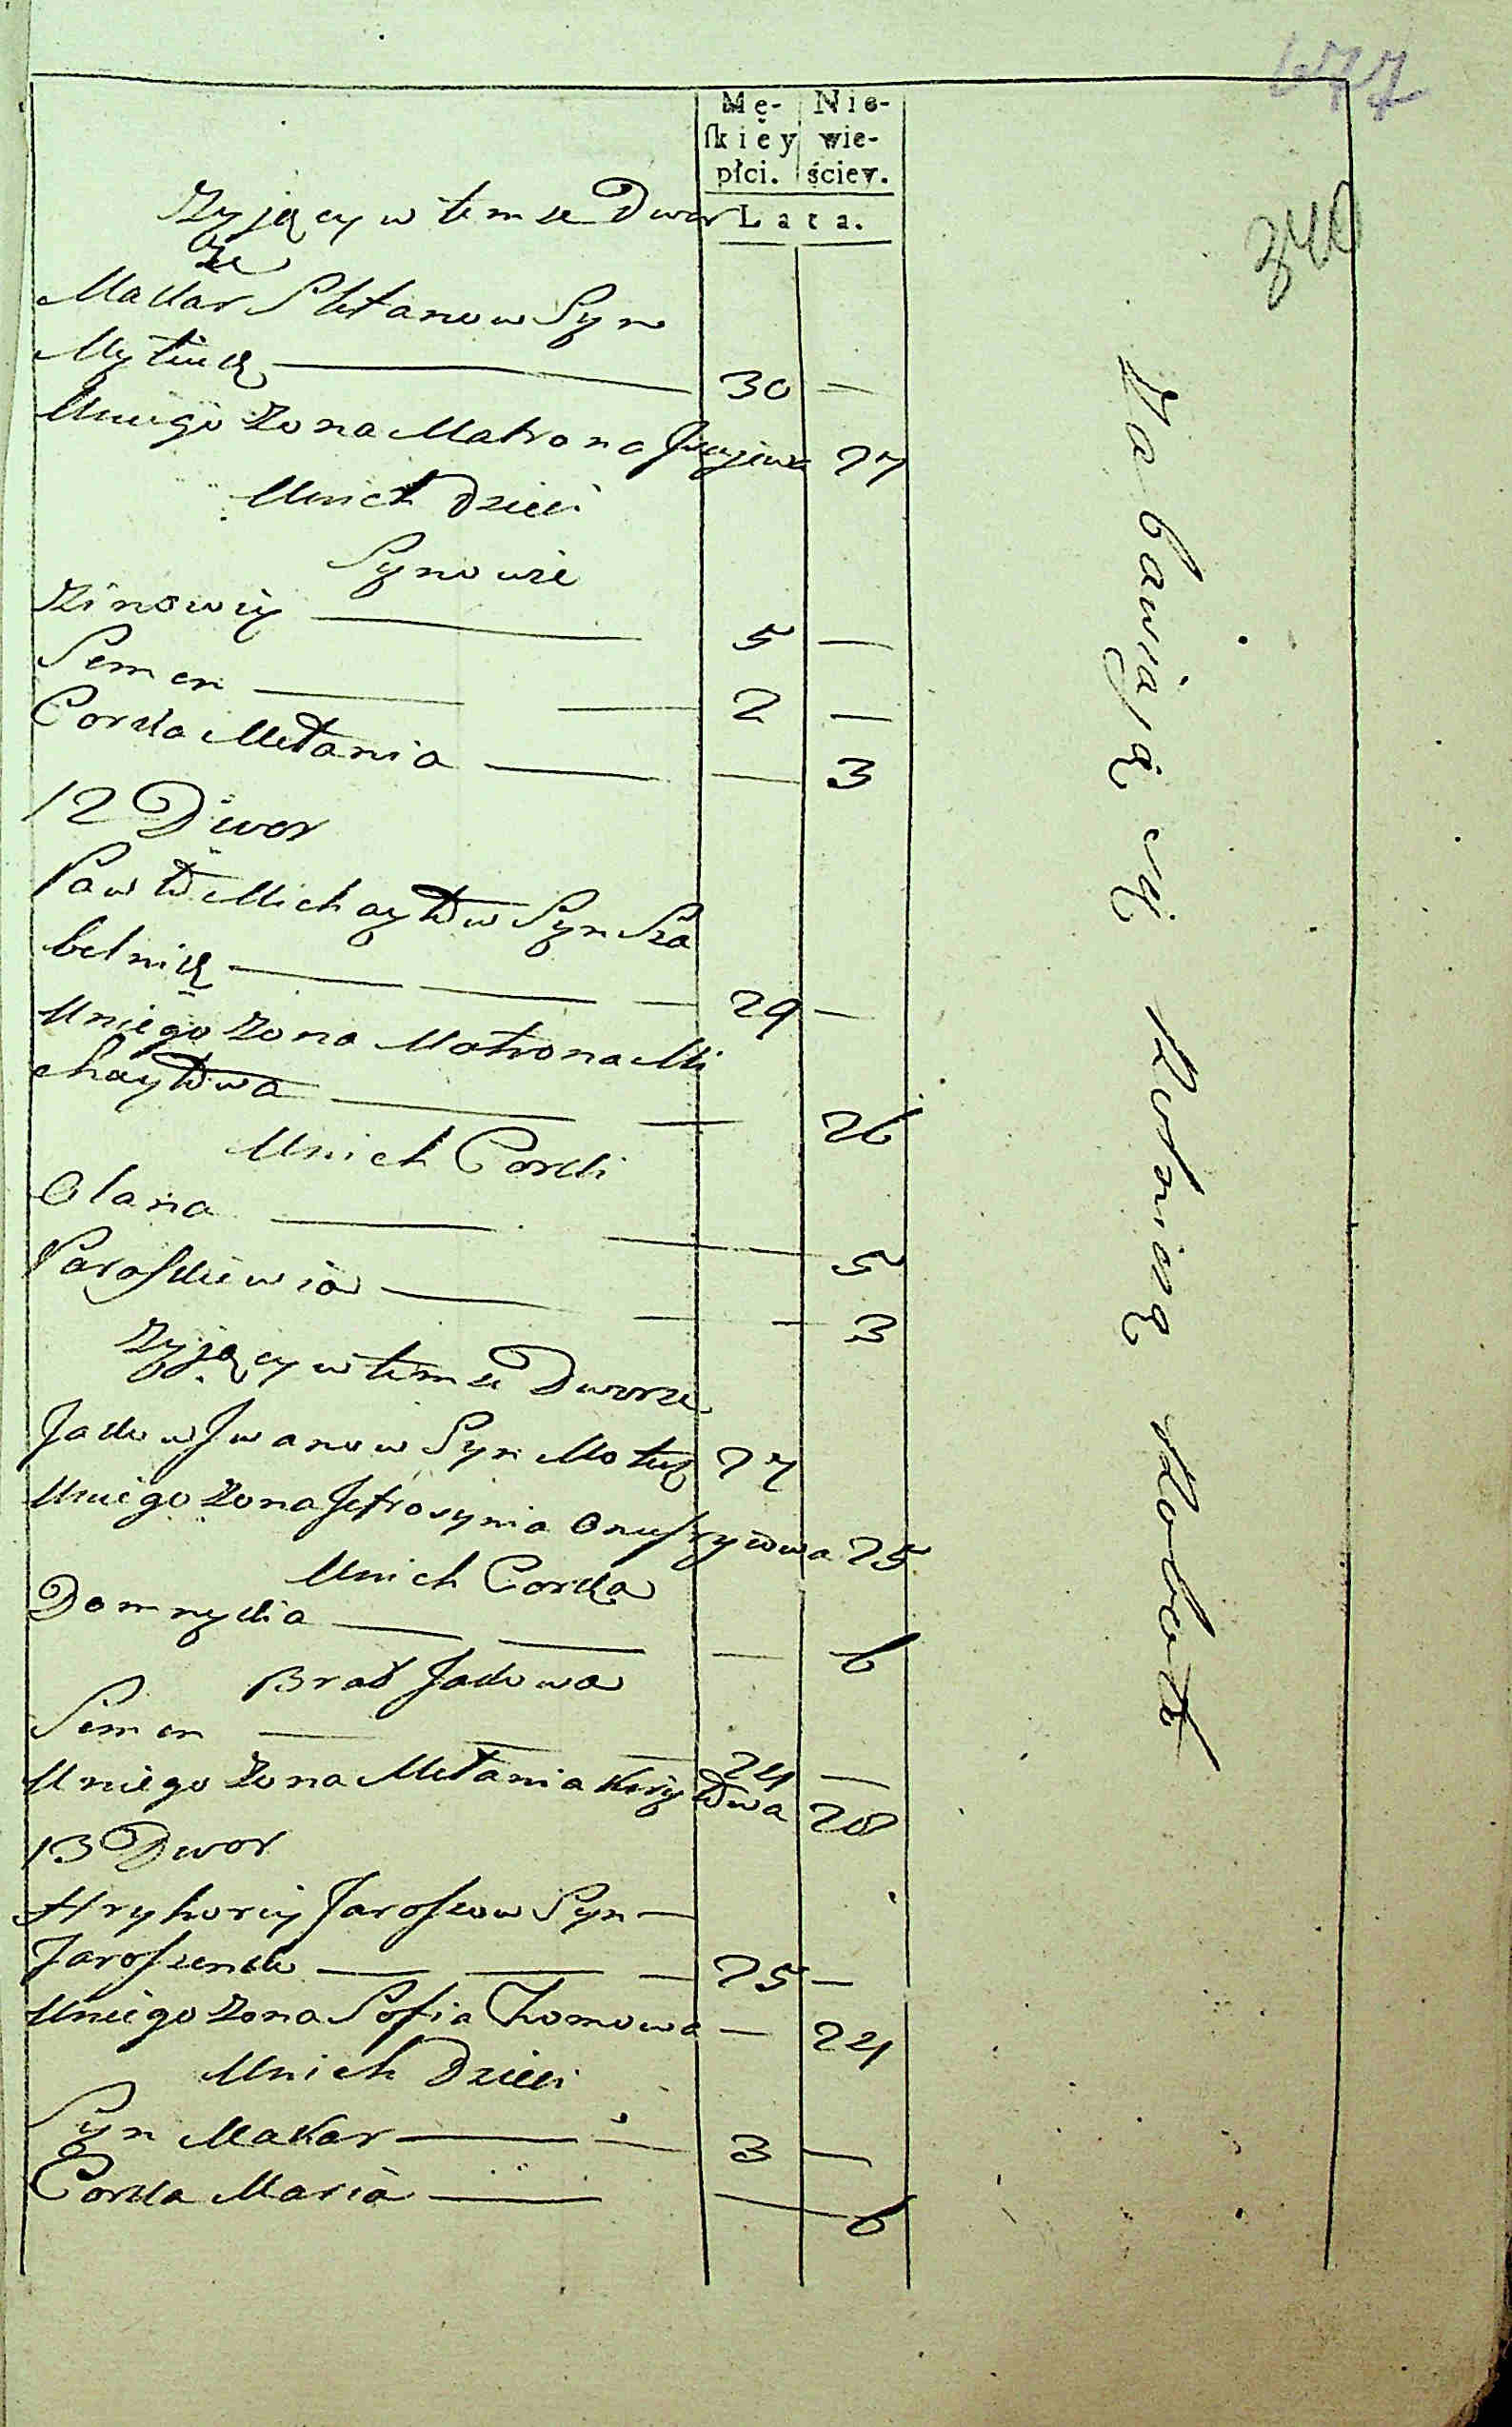 677
340
Mę- Nie-
ſkiéy wie-
płci. ściey.
Lata.
Zyjący w temże Dwor
że
Makar Stefanow Syn
Mytiuk — 30 —
Uniego Zona Matrona 27
Unich Dzieci
Synowie
Zinowiy — 5 —
Semen — 2 —
Corka Mełania — 3
12 Dwor
Pawło Michayłow Syn Sza
belnik — 29 —
Uniego Zona Matrona Mi
chayłowa — 26
Unich Corki
Olana — 5
Paraskiewia — 3
Zyjący w temże Dworze
Jakow Jwanow Syn 27
Uniego Zona Jefrosynia Onufryiowa 25
Unich Corka
Domnykia — 6
Brat Jakowa
Semen — 24 —
Uniego Zona Mełania 20
13 Dwor
Hryhoriy Jaroszow Syn —
Jaroszenko — 25 —
Uniego Zona Sofia Thomowa — 24
Unich Dzieci
Syn Makar — 3 —
Corka Maria — 6
Zabawiają się Rolniczą Robotą